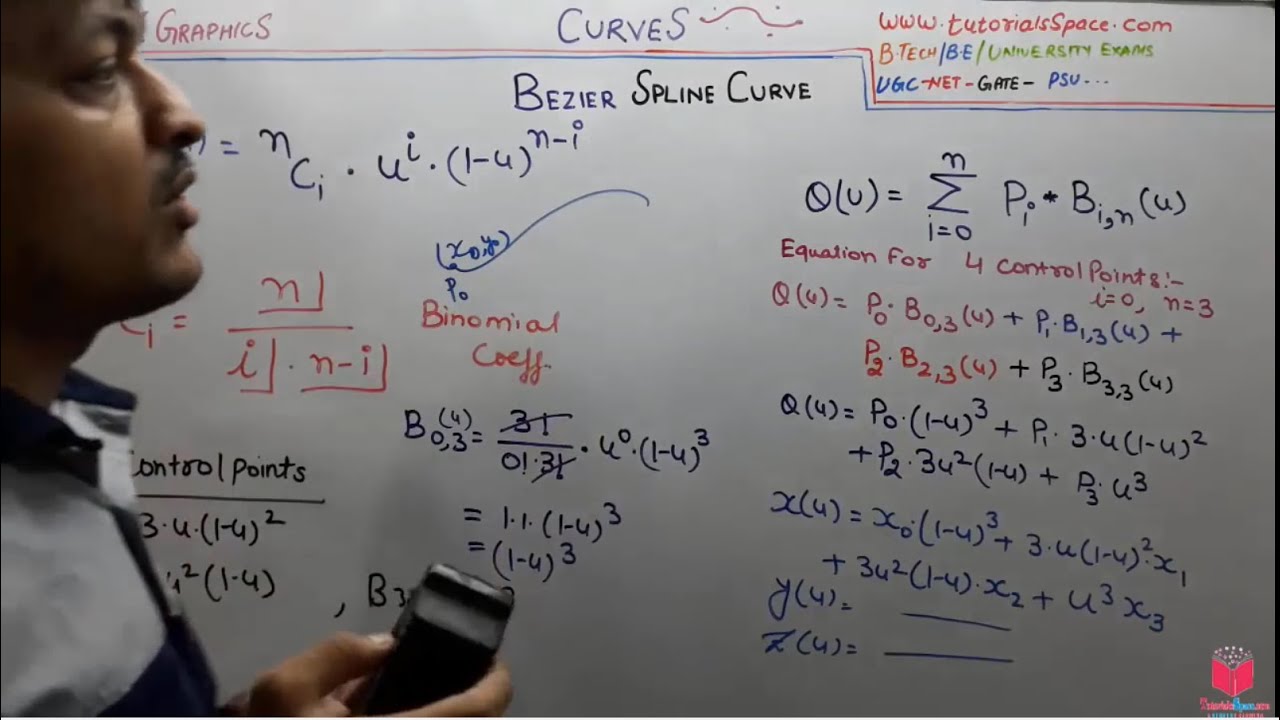 GRAPHICS
CURVES
www.tutorialsSpace.com
B.TECH/B.E/UNIVERSITY EXAMS
UGC-NET-GATE- PSU...
BEZIER SPLINE CURVE
) = ⁿCᵢ · uⁱ · (1-u)ⁿ⁻ⁱ
(x₀,y₀)
P₀
Cᵢ = n⌋ / i⌋ · n-i⌋
Binomial
Coeff.
B₀,₃(u) = 3! / 0!·3! · u⁰·(1-u)³
= 1·1·(1-u)³
= (1-u)³
ontrol points
3·u·(1-u)²
u²(1-u) , B₃
Q(u) = Σ i=0 n Pᵢ * Bᵢ,ₙ(u)
Equation For 4 control Points:-
i=0, n=3
Q(u) = P₀·B₀,₃(u) + P₁·B₁,₃(u) +
P₂·B₂,₃(u) + P₃·B₃,₃(u)
Q(u) = P₀·(1-u)³ + P₁·3·u(1-u)²
+ P₂·3u²(1-u) + P₃·u³
x(u) = x₀·(1-u)³ + 3·u(1-u)²·x₁
+ 3u²(1-u)·x₂ + u³x₃
y(u) =
z(u) =
TutorialsSpace.com